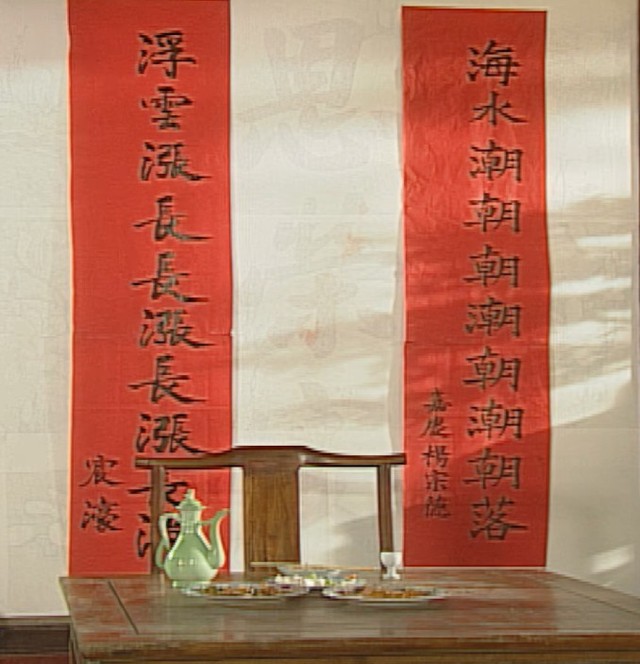 海水潮朝朝潮朝潮朝落
嘉慶楊宗
浮雲漲長長漲長漲長
宸濠